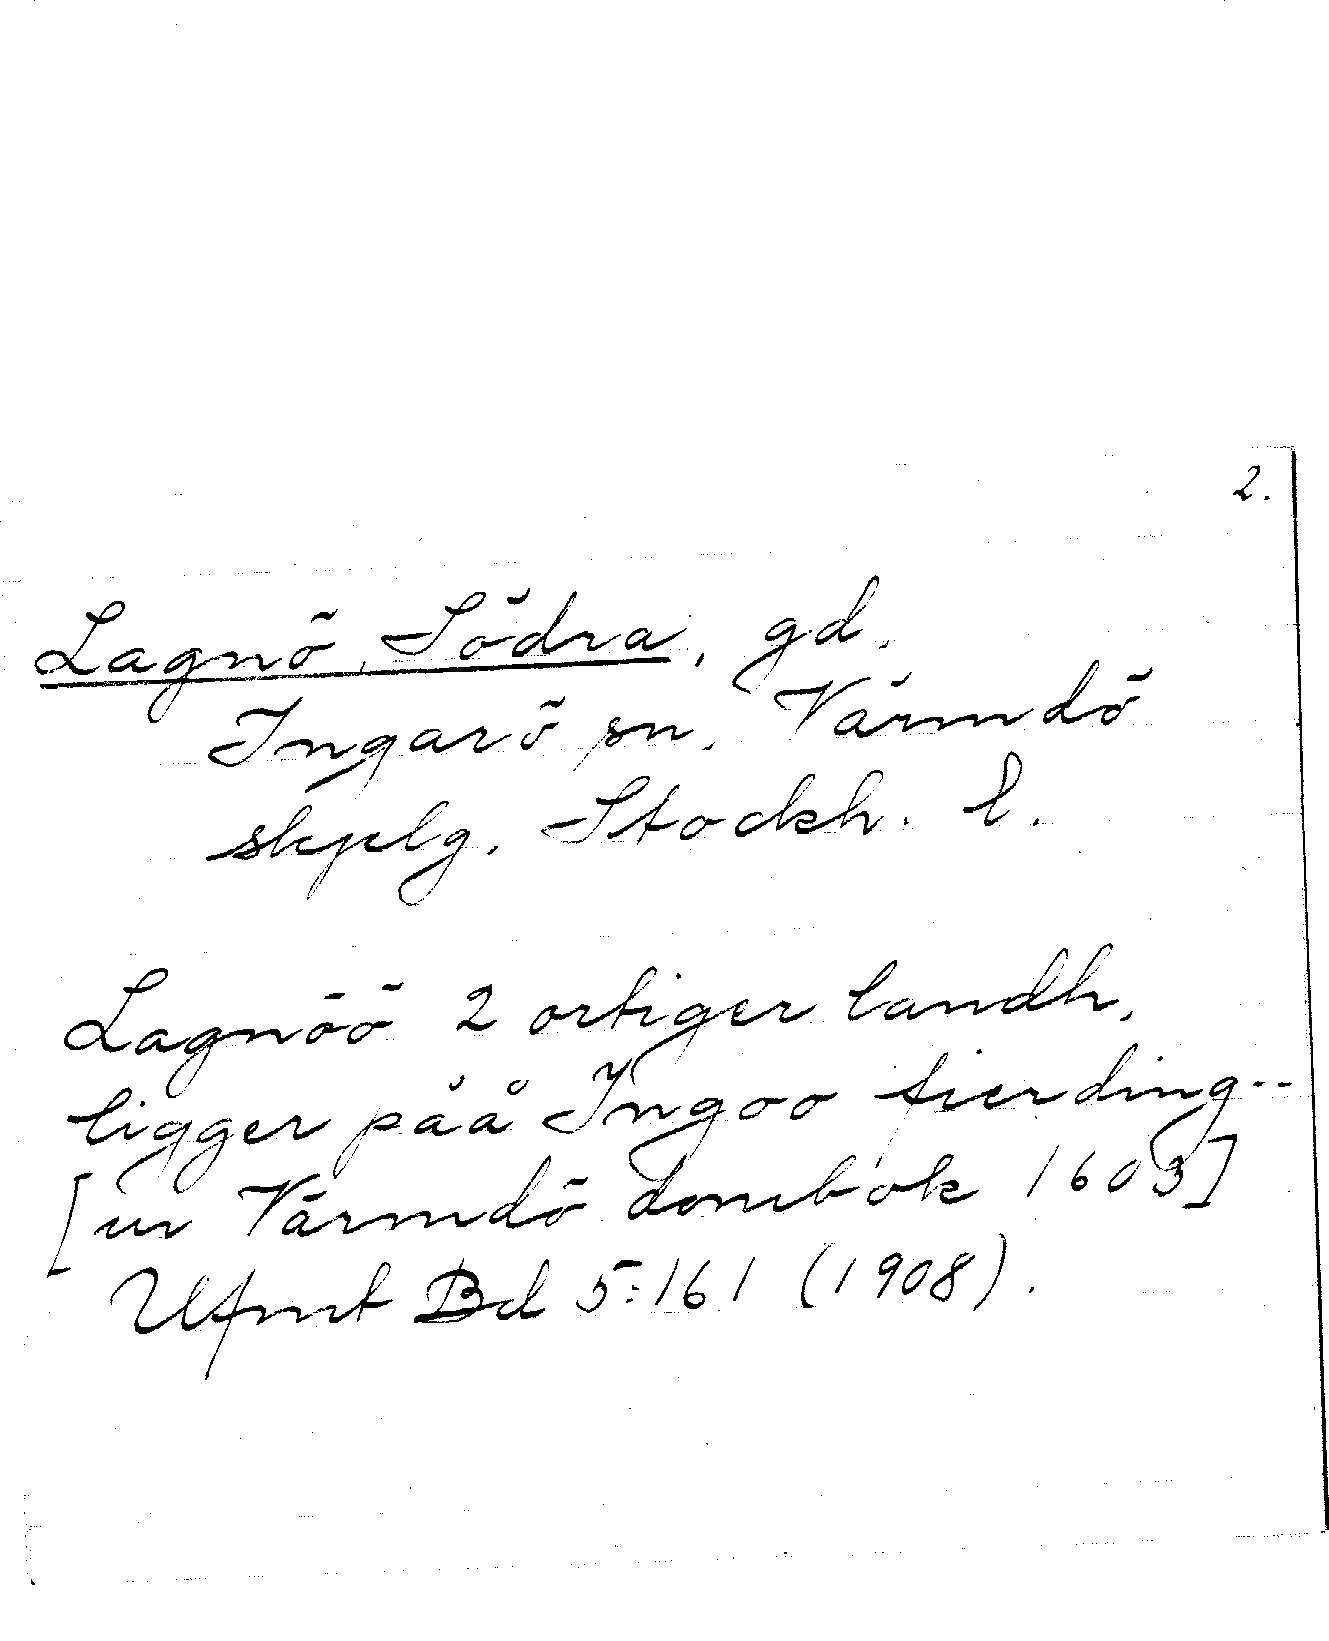 2.
Lagnö, Södra, gd.
Ingarö sn. Värmdö
skplg. Stockh. l.
Lagnöö 2 ortiger landh.
ligger påå Ingoo fierding--
[ur Värmdö dombok 1603]
Ufmt Bd 5:161 (1908).